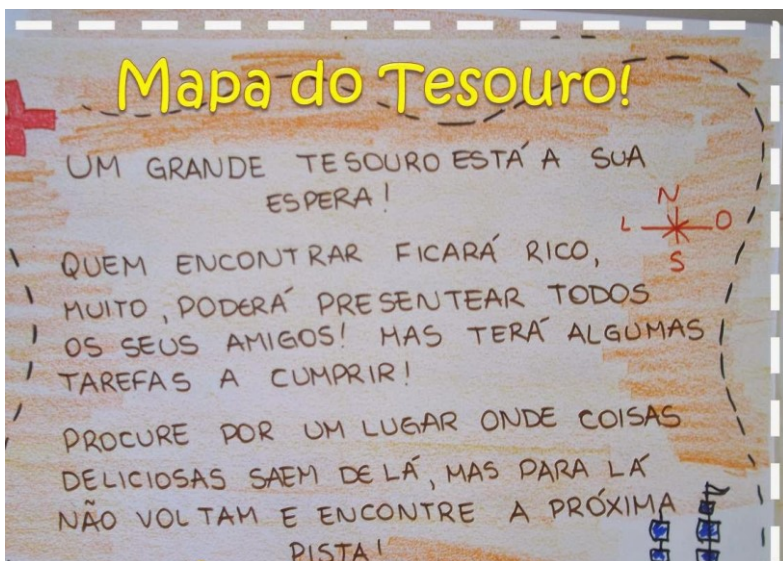 Mapa do Tesouro!
UM GRANDE TESOURO ESTÁ A SUA
ESPERA!
N
L O
S
QUEM ENCONTRAR FICARÁ RICO,
MUITO, PODERÁ PRESENTEAR TODOS
OS SEUS AMIGOS! MAS TERÁ ALGUMAS
TAREFAS A CUMPRIR!
PROCURE POR UM LUGAR ONDE COISAS
DELICIOSAS SAEM DE LÁ, MAS PARA LÁ
NÃO VOLTAM E ENCONTRE A PRÓXIMA
PISTA!